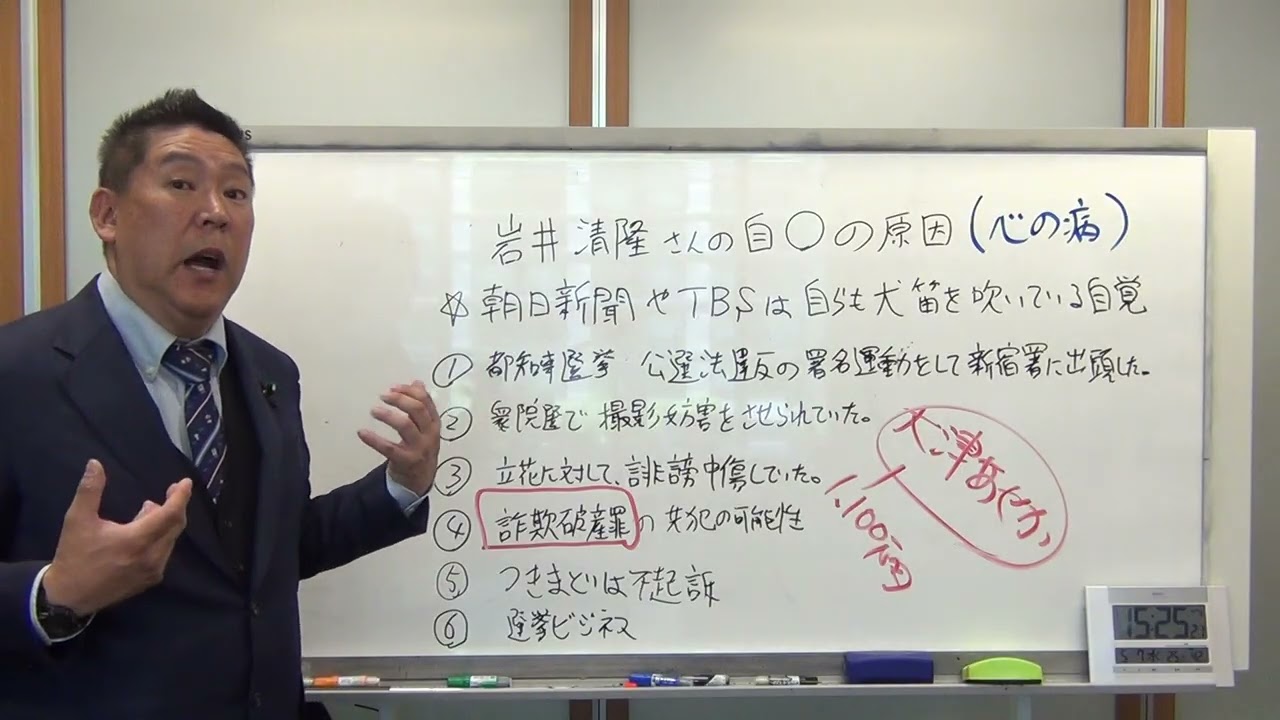 岩井清隆さんの自〇の原因(心の病)
☆朝日新聞やTBSは自らも犬笛を吹いている自覚
① 都知事選挙 公選法違反の署名運動をして新宿署に出頭した。
② 衆院選で撮影妨害をさせられていた。
③ 立花に対して、誹謗中傷していた。
④ 詐欺破産罪の共犯の可能性
⑤ つきまといは不起訴
⑥ 選挙ビジネス
大津あやか
1,100万円
15:25 27